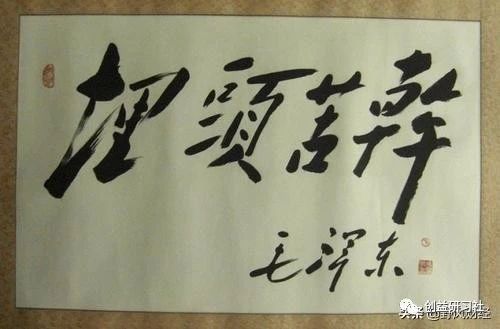 埋頭苦幹
毛泽东
创益研习社